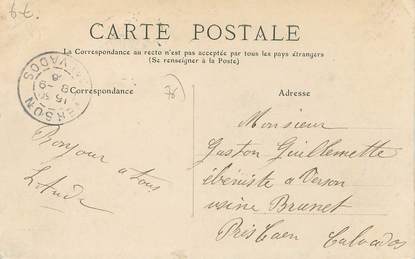 CARTE POSTALE
La Correspondance au recto n'est pas acceptée par tous les pays étrangers
(Se renseigner à la Poste)
Correspondance
Adresse
VERSON
15 30
8 -9
CALVADOS
78
Bonjour a tous
Monsieur
Gaston Guillemette
ébéniste a Verson
usine Brunet
Près Caen Calvados